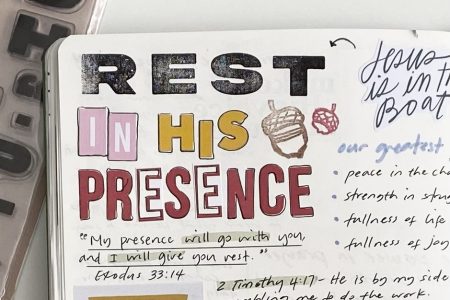 REST
IN HIS
PRESENCE
"My presence will go with you,
and I will give you rest."
Exodus 33:14
Jesus
is in th
Boat
our greatest
peace in the cha
strength in strug
fullness of life
fullness of joy
2 Timothy 4:17 - He is by my side
me to do the work.